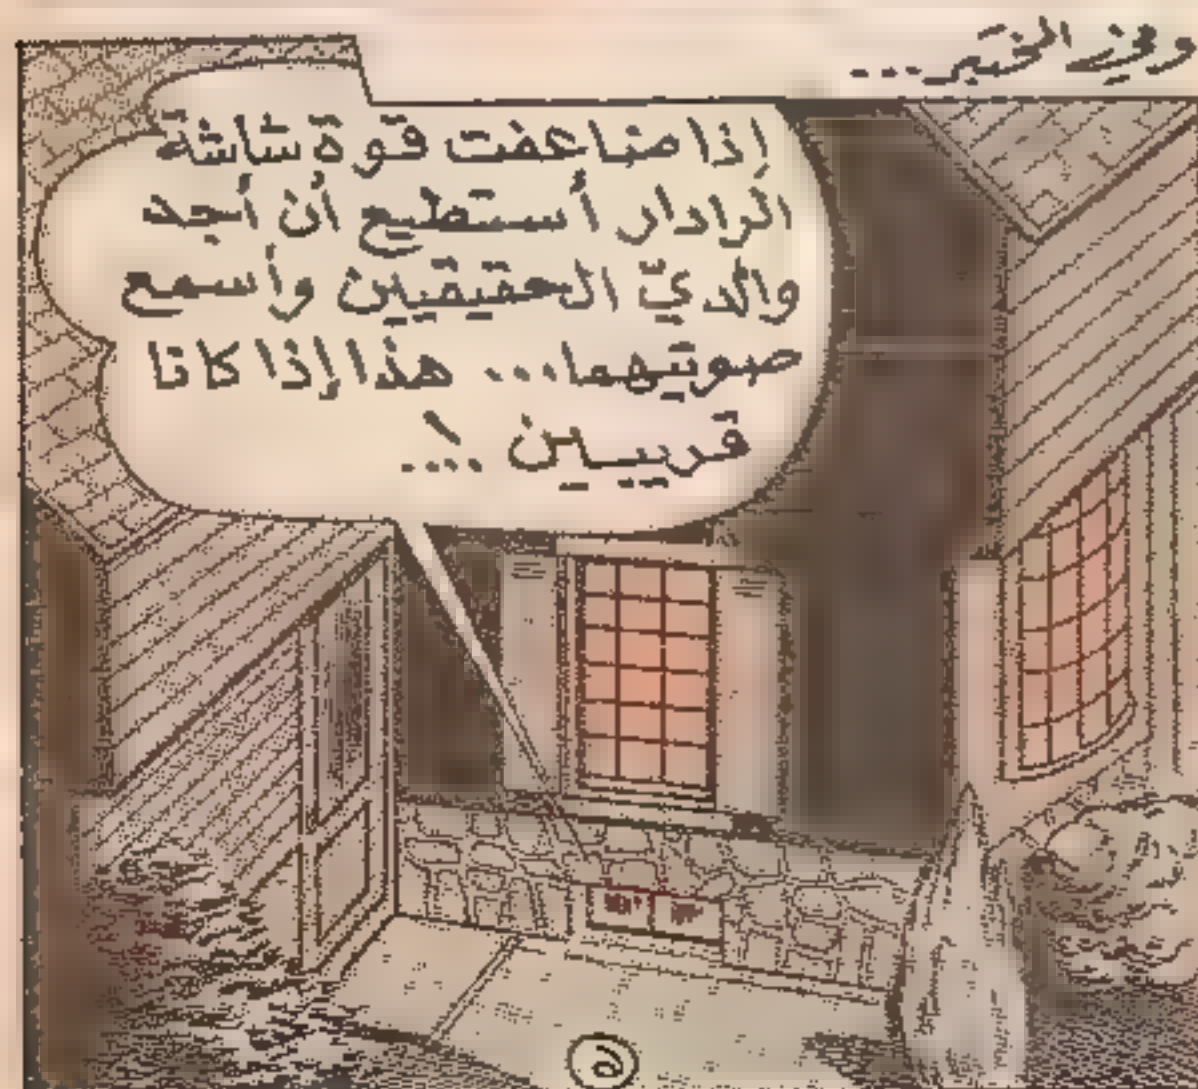 وفي القبر...
إذا ضاعفت قوة شاشة
الرادار أستطيع أن أجد
والديّ الحقيقيين وأسمع
صوتيهما... هذا إذا كانا
قريبين....!